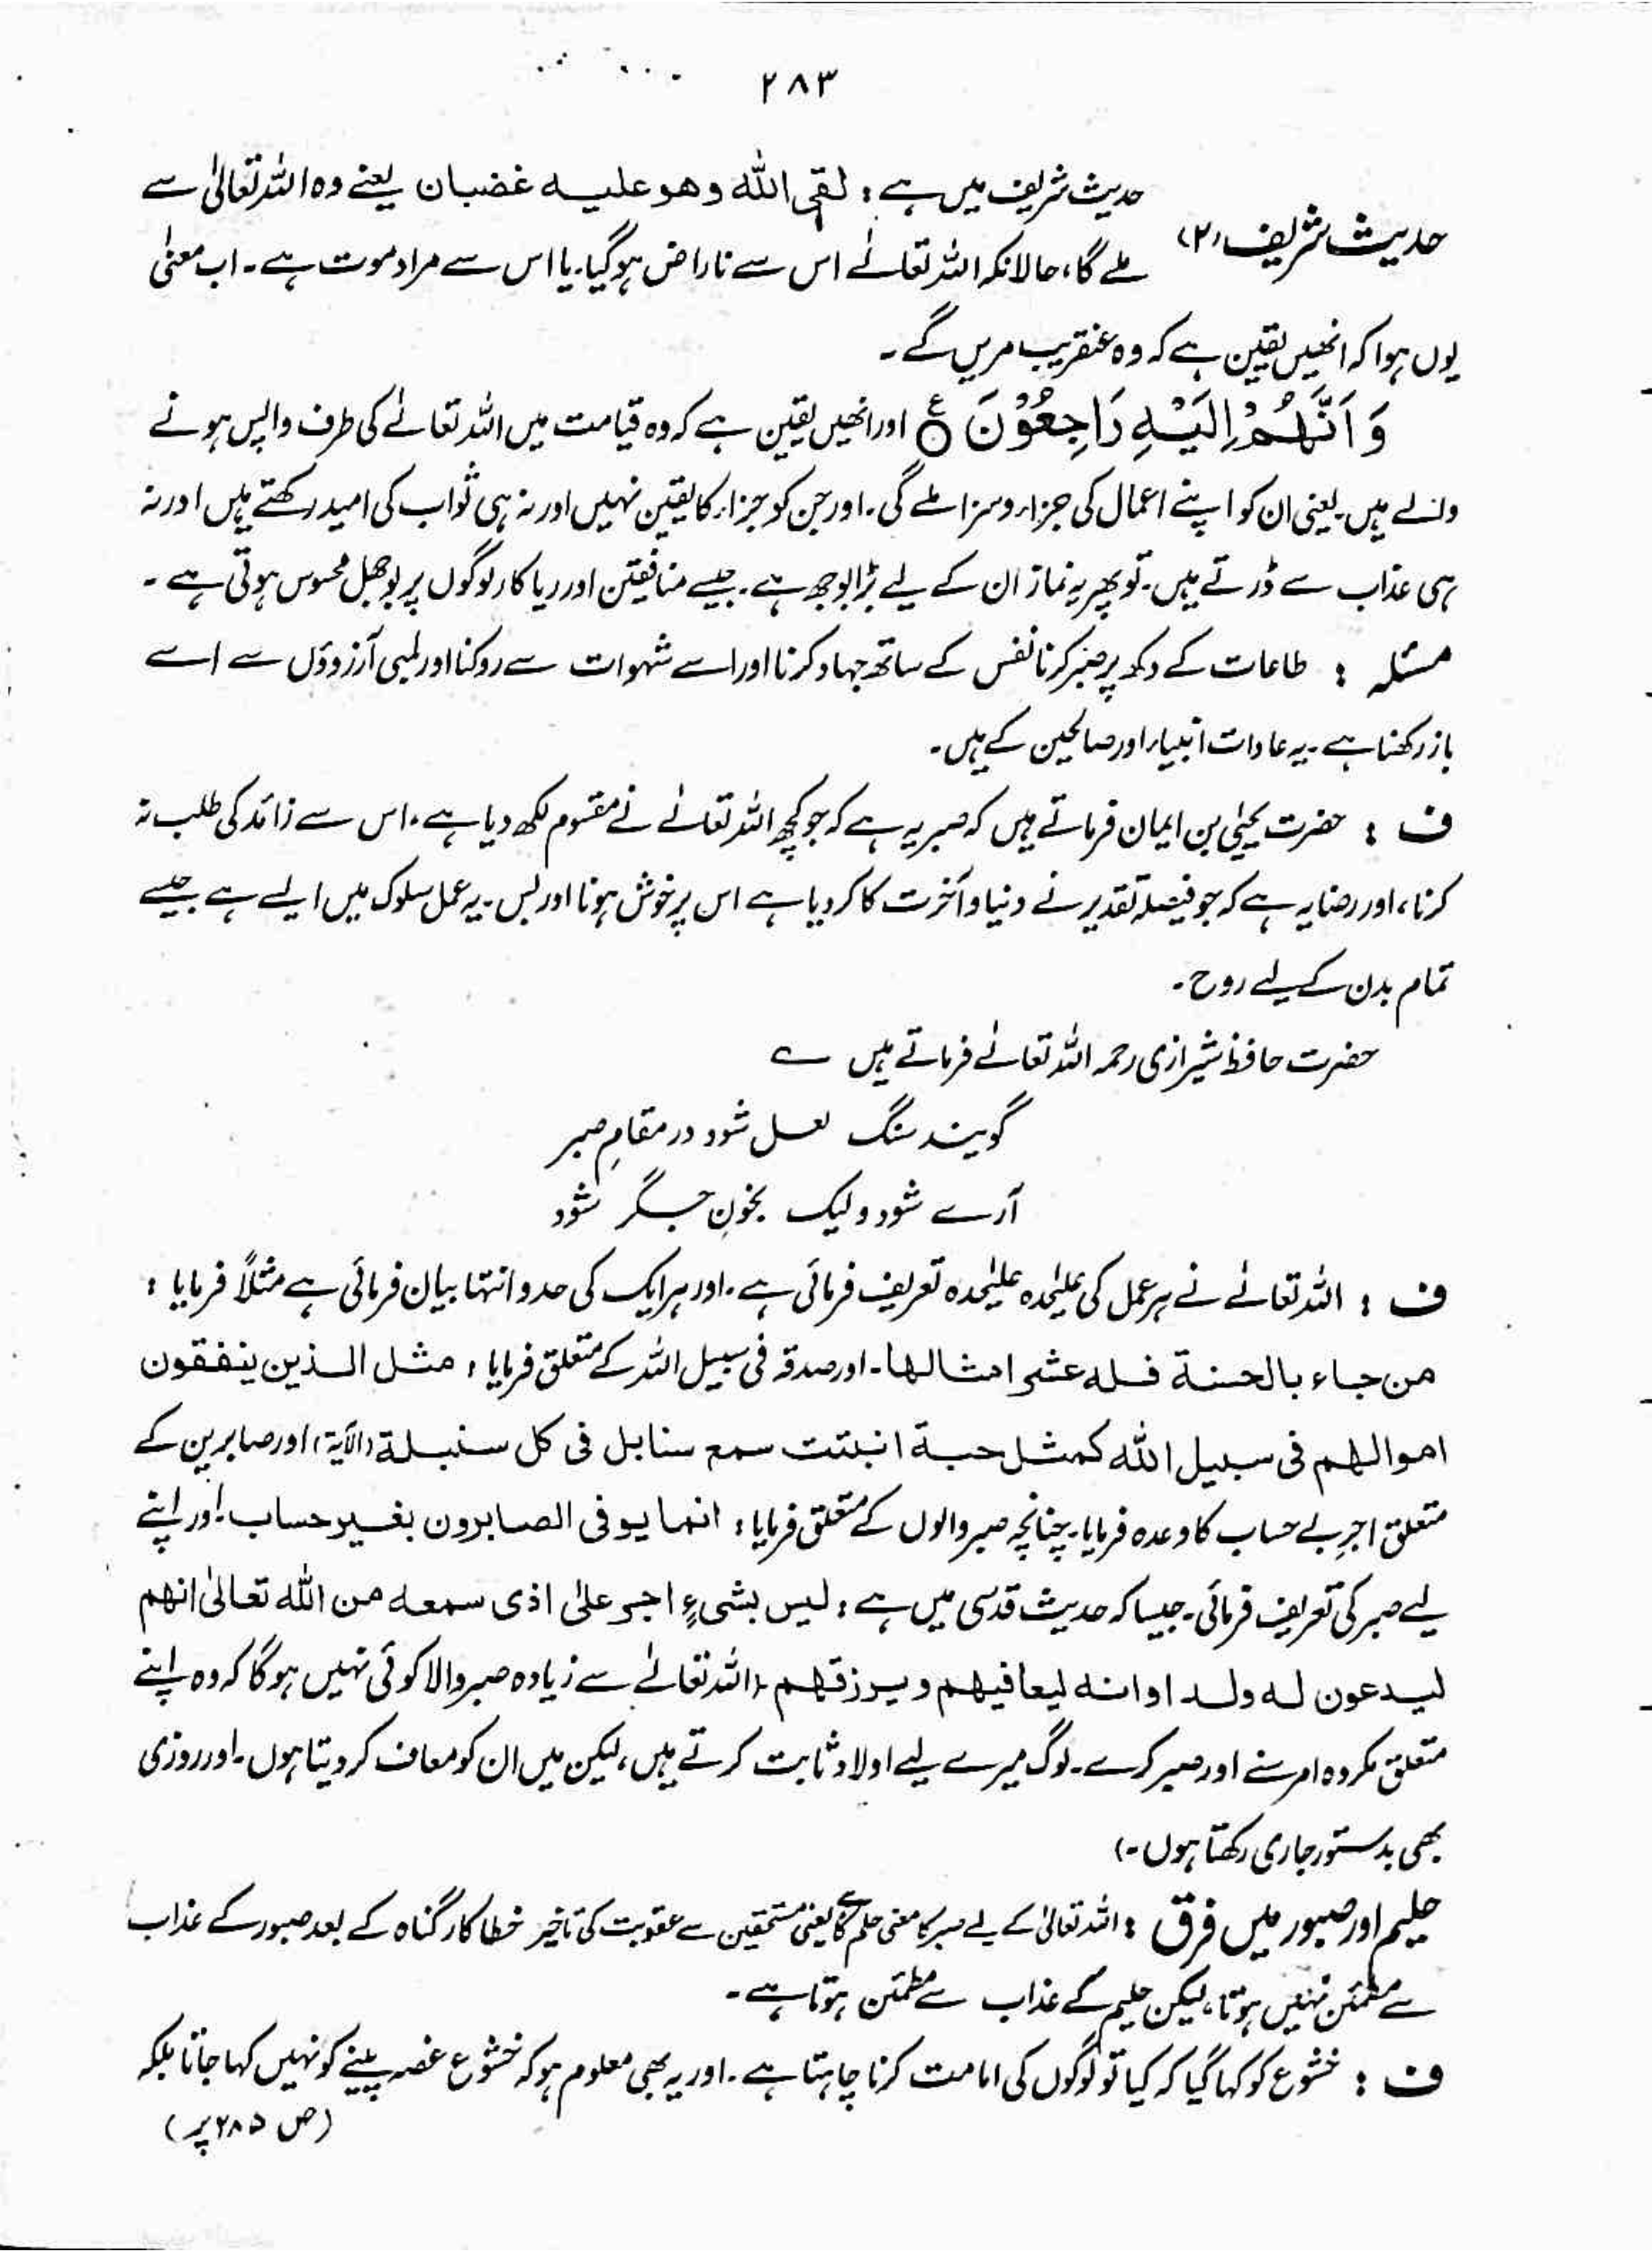 ۲۸۳
حدیث شریف (۲)
حدیث شریف میں ہے : لقی اللہ وھو علیہ غضبان یعنے وہ اللہ تعالیٰ سے
ملے گا، حالانکہ اللہ تعالےٰ اس سے ناراض ہوگیا۔ یا اس سے مراد موت ہے۔ اب معنیٰ
یوں ہوا کہ انھیں یقین ہے کہ وہ عنقریب مریں گے۔
وَ اَنَّهُمْ اِلَيْهِ رَاجِعُوْنَ ۝ ع اور انھیں یقین ہے کہ وہ قیامت میں اللہ تعالےٰ کی طرف واپس ہونے
والے ہیں۔ یعنی ان کو اپنے اعمال کی جزاء و سزا ملے گی۔ اور جن کو جزاء کا یقین نہیں اور نہ ہی ثواب کی امید رکھتے ہیں اور نہ
ہی عذاب سے ڈرتے ہیں۔ تو پھر یہ نماز ان کے لیے بڑا بوجھ ہے۔ جیسے منافقین اور ریاکار لوگوں پر بوجھل محسوس ہوتی ہے۔
مسئلہ : طاعات کے دکھ پر صبر کرنا نفس کے ساتھ جہاد کرنا اور اسے شہوات سے روکنا اور لمبی آرزوؤں سے اسے
باز رکھنا ہے۔ یہ عادات انبیاء اور صالحین کے ہیں۔
ف : حضرت یحییٰ بن ایمان فرماتے ہیں کہ صبر یہ ہے کہ جو کچھ اللہ تعالےٰ نے مقسوم لکھ دیا ہے، اس سے زائد کی طلب نہ
کرنا، اور رضا یہ ہے کہ جو فیصلہ تقدیر نے دنیا و آخرت کا کر دیا ہے اس پر خوش ہونا اور بس۔ یہ عمل سلوک میں ایسے ہے جیسے
تمام بدن کے لیے روح۔
حضرت حافظ شیرازی رحمہ اللہ تعالےٰ فرماتے ہیں ے
گویند سنگ لعل شود در مقامِ صبر
آرے شود ولیک بخونِ جگر شود
ف : اللہ تعالےٰ نے ہر عمل کی علیٰحدہ علیٰحدہ تعریف فرمائی ہے۔ اور ہر ایک کی حد و انتہا بیان فرمائی ہے مثلاً فرمایا :
من جاء بالحسنة فله عشر امثالها۔ اور صدقہ فی سبیل اللہ کے متعلق فرمایا : مثل الذین ینفقون
اموالهم فی سبیل الله کمثل حبة انبتت سبع سنابل فی کل سنبلة (الآیۃ) اور صابرین کے
متعلق اجرِ بے حساب کا وعدہ فرمایا۔ چنانچہ صبر والوں کے متعلق فرمایا : انما یوفی الصابرون بغیر حساب۔ اور اپنے
لیے صبر کی تعریف فرمائی۔ جیسا کہ حدیث قدسی میں ہے : لیس بشیءٍ اجر علیٰ اذی سمعه من الله تعالیٰ انهم
لیدعون له ولد اوانه لیعافیهم ویرزقهم۔ (اللہ تعالےٰ سے زیادہ صبر والا کوئی نہیں ہوگا کہ وہ اپنے
متعلق مکروہ امر سنے اور صبر کرے۔ لوگ میرے لیے اولاد ثابت کرتے ہیں، لیکن میں ان کو معاف کر دیتا ہوں۔ اور روزی
بھی بدستور جاری رکھتا ہوں۔)
حلیم اور صبور میں فرق : اللہ تعالیٰ کے لیے صبر کا معنی حلم کا ہے یعنی مستحقین سے عقوبت کی تاخیر خطاکار گناہ کے بعد صبور کے عذاب
سے مطمئن نہیں ہوتا، لیکن حلیم کے عذاب سے مطمئن ہوتا ہے۔
ف : خشوع کو کہا گیا کہ کیا تو لوگوں کی امامت کرنا چاہتا ہے۔ اور یہ بھی معلوم ہو کہ خشوع غصہ پینے کو نہیں کہا جاتا بلکہ
(ص ۲۸۵ پر)